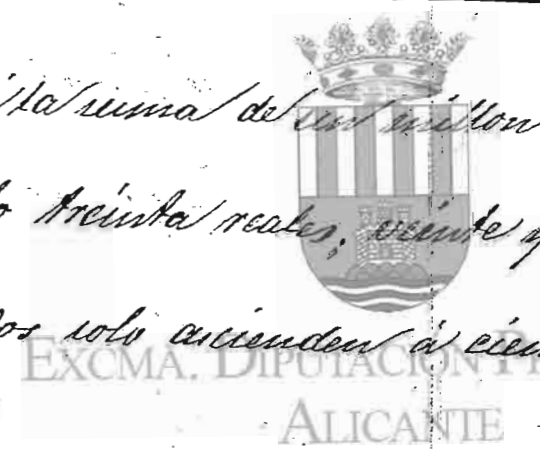 la suma de un millon
treinta reales, veinte y
solo ascienden á cien
EXCMA. DIPUTACIÓN P
ALICANTE